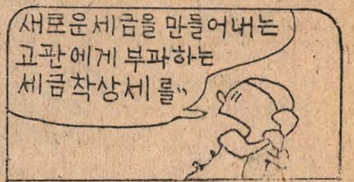 새로운세금을 만들어내는
고관에게 부과하는
세금착상세를‥